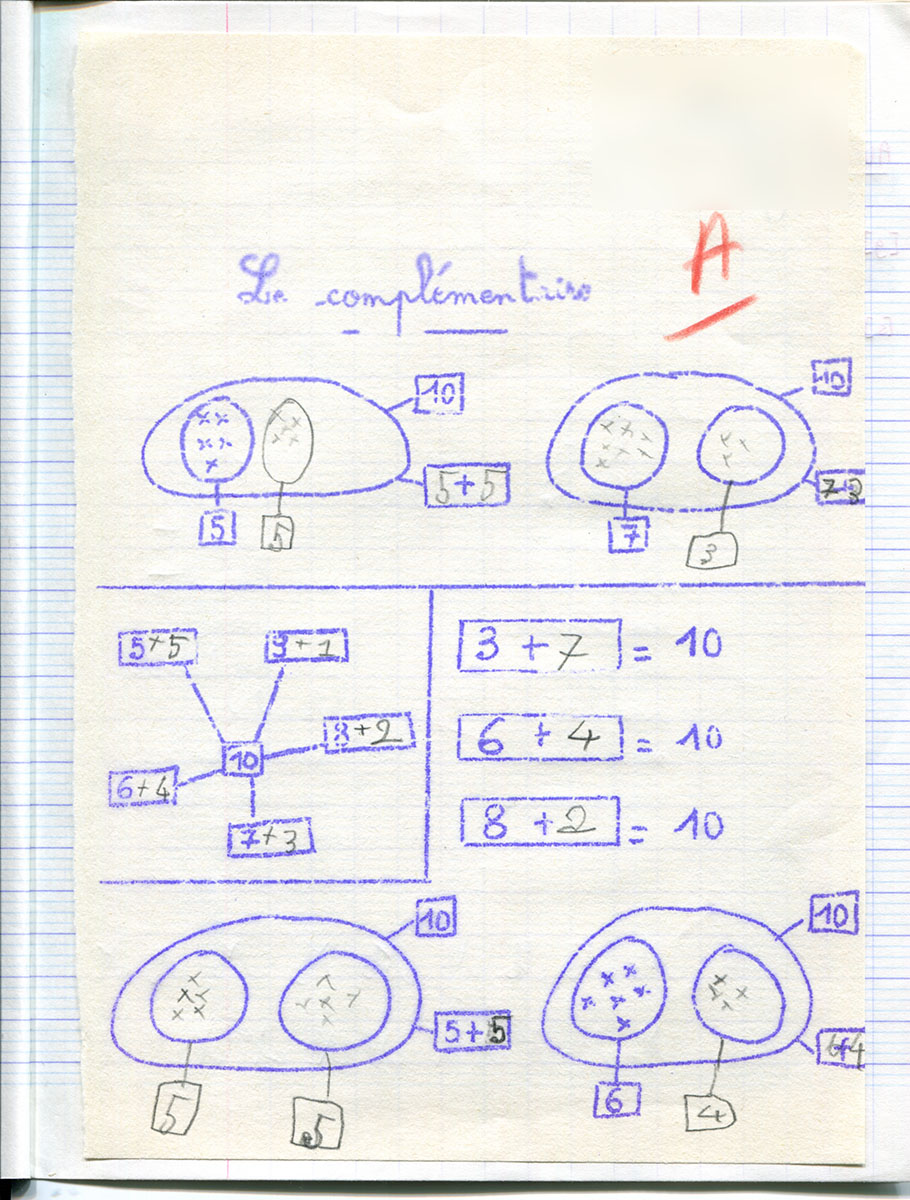 A
Le complémentaire
10
5+5
5
5
10
7+3
7
3
5+5
9+1
8+2
10
6+4
7+3
3 + 7 = 10
6 + 4 = 10
8 + 2 = 10
10
5+5
5
5
10
6+4
6
4